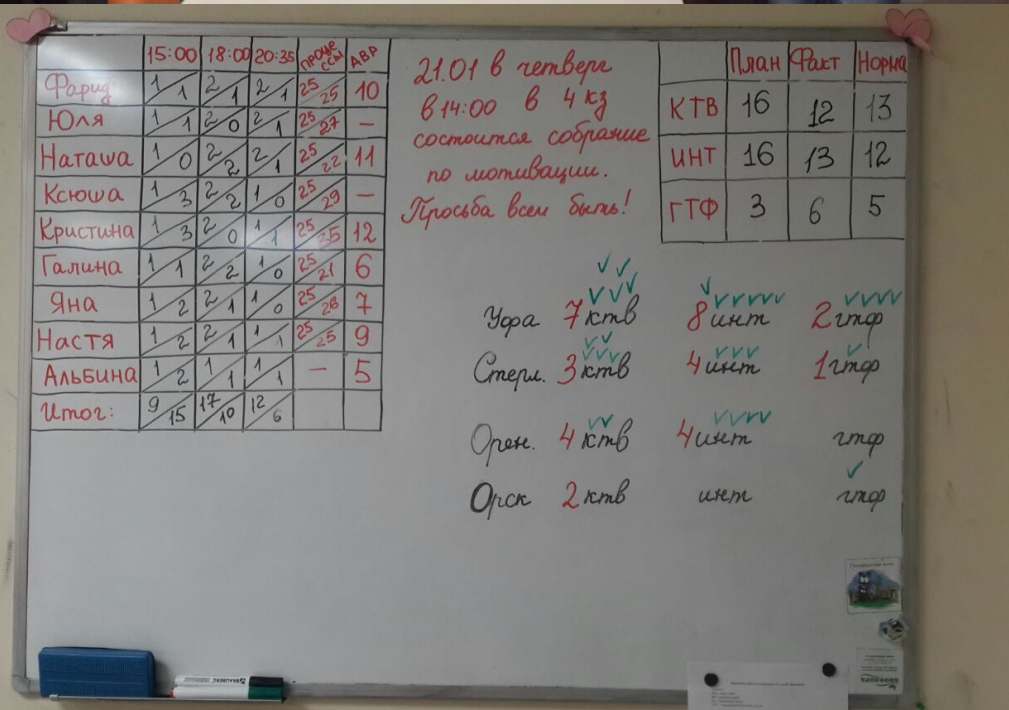 15:00 18:00 20:35 ПРОЦЕ ССЫ АВР
Фарид 1/1 2/1 2/1 25/25 10
Юля 1/1 2/0 2/1 25/27 —
Наташа 1/0 2/2 2/1 25/22 11
Ксюша 1/3 2/2 1/0 25/29 —
Кристина 1/3 2/0 1/1 25/25 12
Галина 1/1 2/2 1/0 25/21 6
Яна 1/2 2/1 1/0 25/28 7
Настя 1/2 2/1 1/1 25/25 9
Альбина 1/2 1/1 1/1 — 5
Итог: 9/15 17/10 12/6
21.01 в четверг
в 14:00 в 4 кз
состоится собрание
по мотивации.
Просьба всем быть!
План Факт Норма
КТВ 16 12 13
ИНТ 16 13 12
ГТФ 3 6 5
Уфа 7 ктв 8 инт 2 гтф
Стерл. 3 ктв 4 инт 1 гтф
Орен. 4 ктв 4 инт гтф
Орск 2 ктв инт гтф